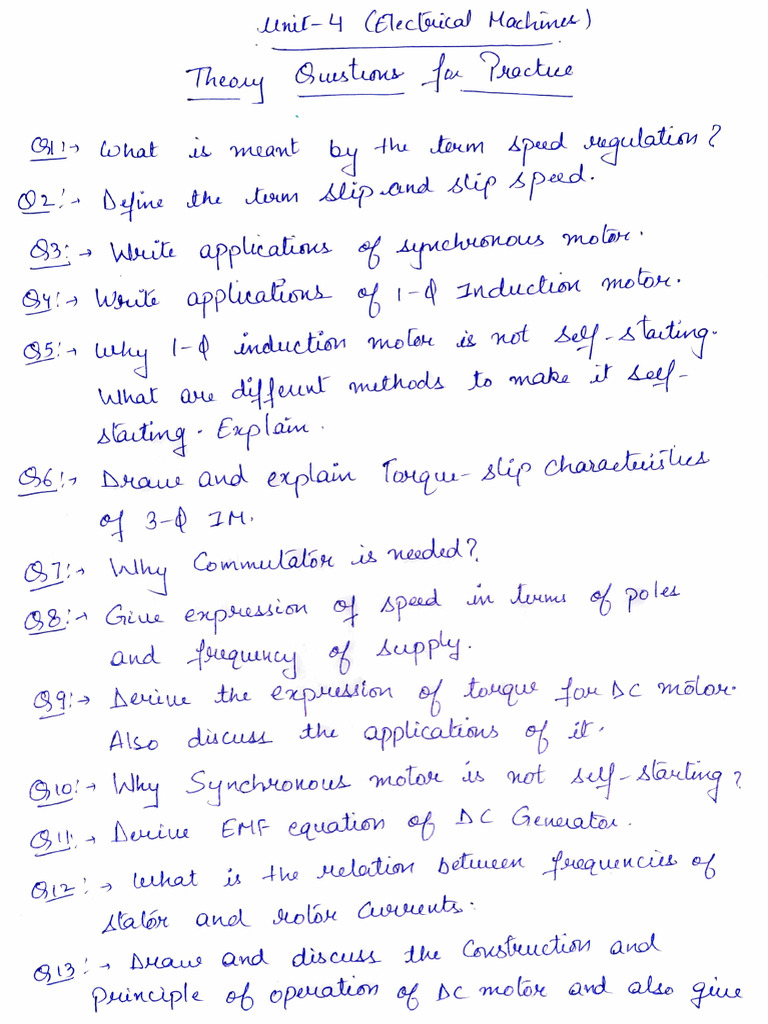 Unit-4 (Electrical Machines)
Theory Questions for Practice
Q1:→ What is meant by the term speed regulation?
Q2:→ Define the term slip and slip speed.
Q3:→ Write applications of synchronous motor.
Q4:→ Write applications of 1-Φ Induction motor.
Q5:→ Why 1-Φ induction motor is not self-starting.
What are different methods to make it self-
starting. Explain.
Q6:→ Draw and explain Torque-slip characteristics
of 3-Φ IM.
Q7:→ Why Commutator is needed?
Q8:→ Give expression of speed in terms of poles
and frequency of supply.
Q9:→ Derive the expression of torque for DC motor.
Also discuss the applications of it.
Q10:→ Why Synchronous motor is not self-starting?
Q11:→ Derive EMF equation of DC Generator.
Q12:→ What is the relation between frequencies of
stator and rotor currents.
Q13:→ Draw and discuss the construction and
principle of operation of DC motor and also give